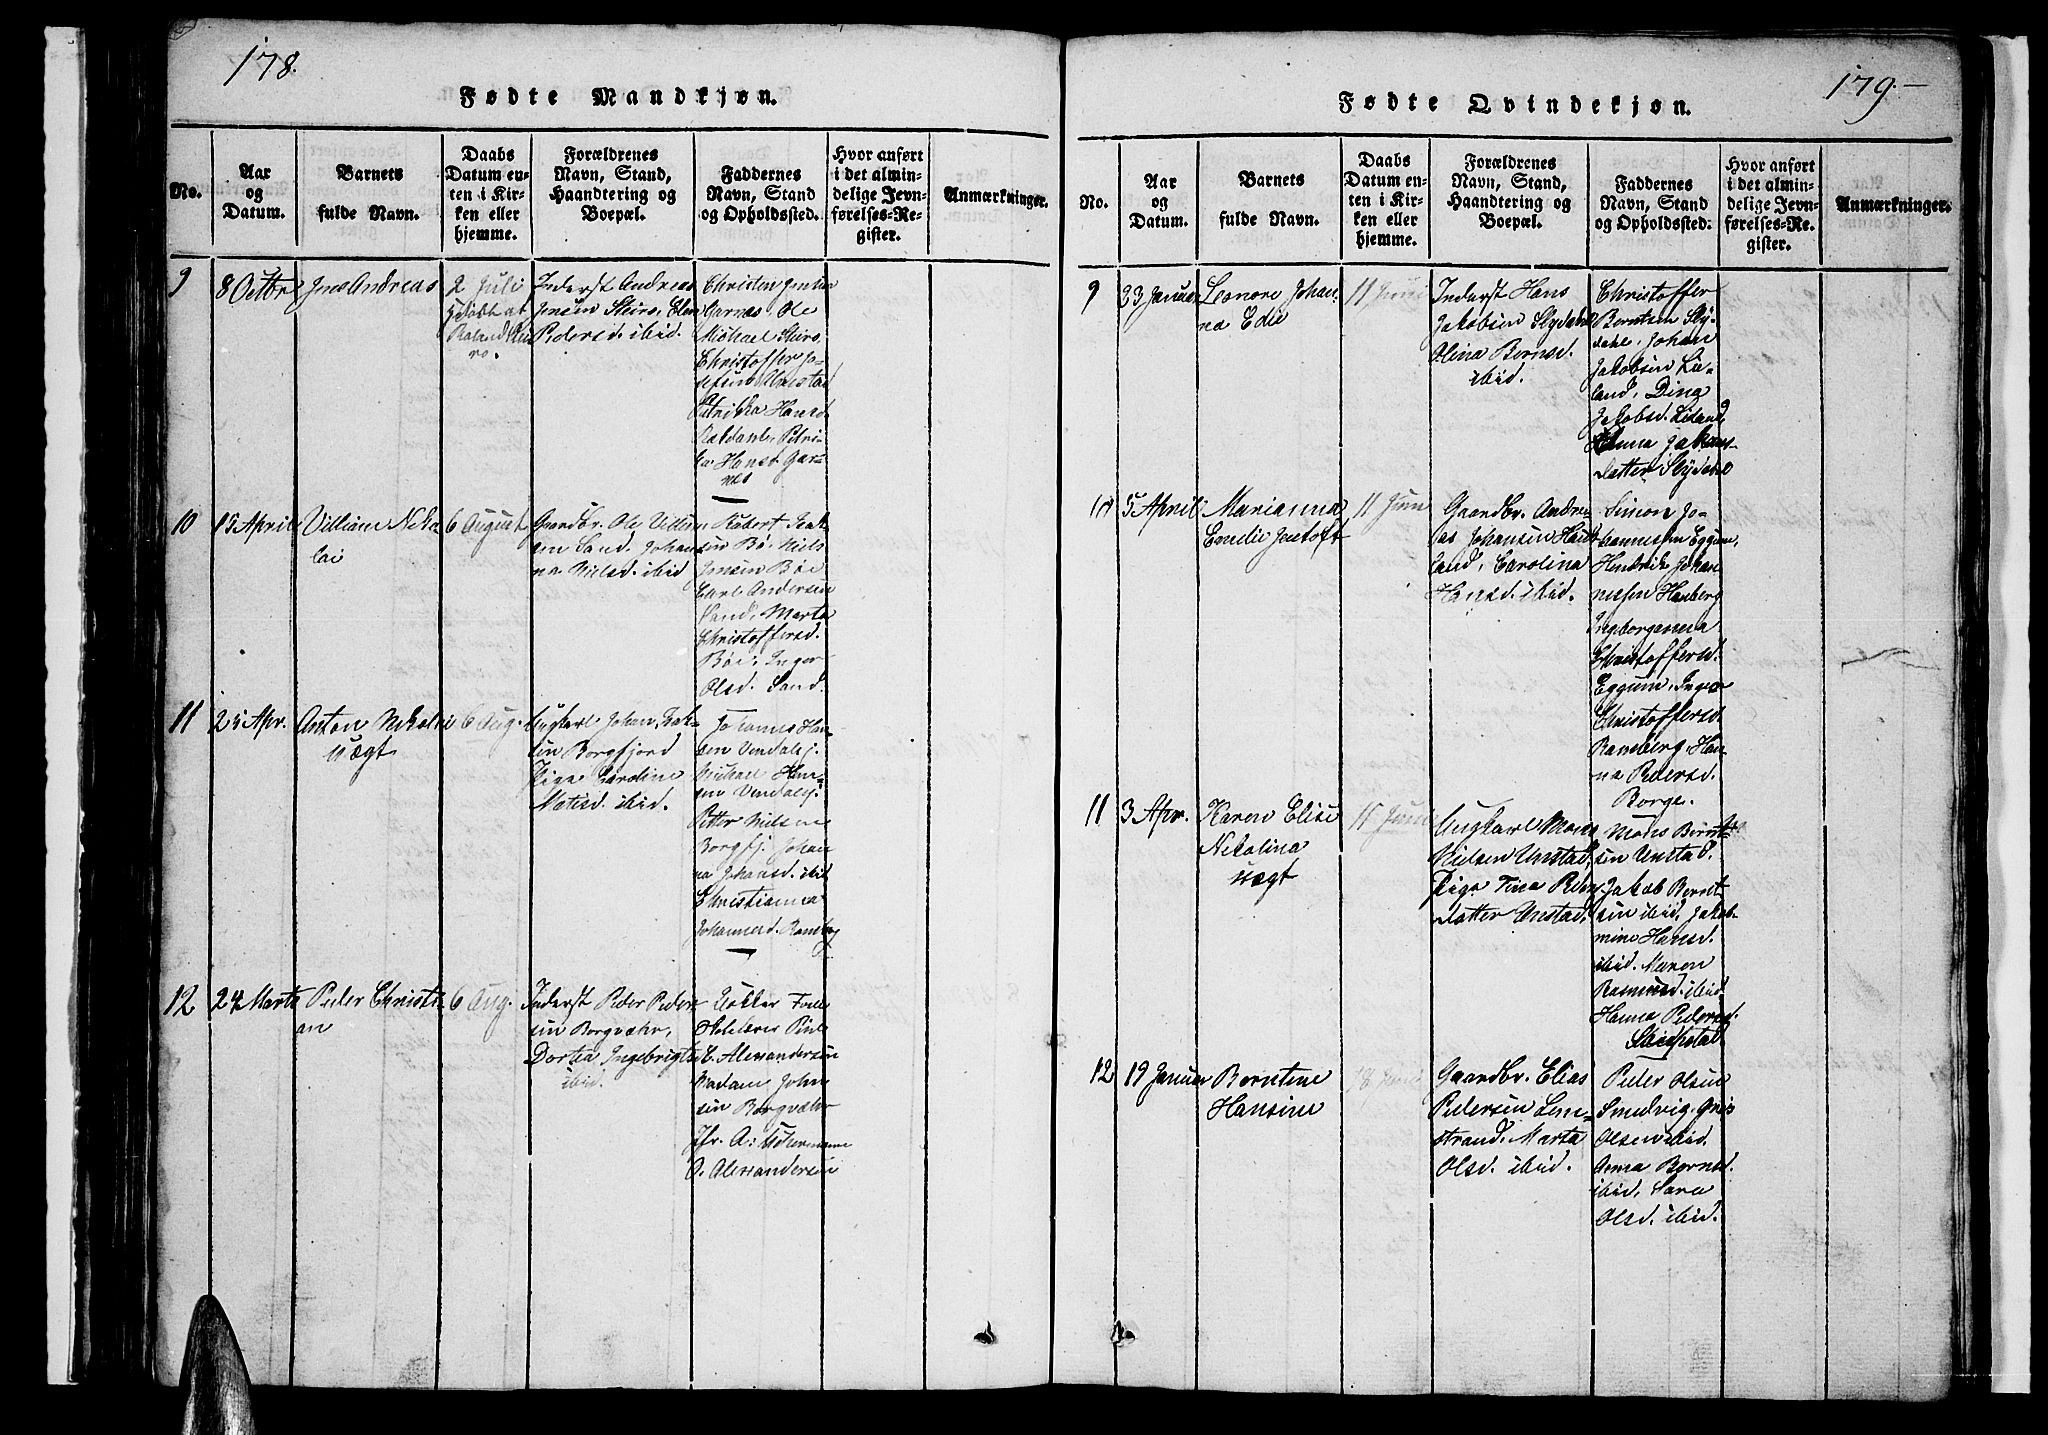 178.
Fødte Mandkjøn.
No.
Aar
og
Datum.
Barnets
fulde Navn.
Daabs
Datum en-
ten i Kir-
ken eller
hjemme.
Forældrenes
Navn, Stand,
Haandtering og
Boepæl.
Faddernes
Navn, Stand
og Opholdssted.
Hvor anført
i det almin-
delige Jevn-
førelses-Re-
gister.
Anmærkninger.
9
8 Octbr
Jens Andreas
2 Juli
Inderst Andreas
Jensen Steiro, Elen
Pedersd. ibid.
Christen Jentoft
Garnæs, Ole
Michael Steiro,
Christoffer Jo-
sefsen Unstad
Hansd.
Petri-
ca Hansd. Gar-
næs
10
15 April
Villiam Niko-
lai
6 August
Gaardbr. Ole Villum-
sen Sand. Johan-
na Nielsd. ibid
Robert Isak-
sen Bø. Niels
Jensen Bøe
Carl Andersen
Sand, Marta
Christoffersd.
Bøe, Inger
Olsd. Sand.
11
25 Apr.
Anton Nikolai
uægt
6 Aug.
Ungkarl Johan Isak-
sen Borgfjord
Pige Caroline
Matisd. ibid.
Johannes Han-
sen Vendalsj.
Michael Han-
sen Vendalsj.
Petter Nielsen
Borgfj. Johan-
na Johansd. ibid
Christianna
Johannesd. Ramberg
12
24 Marts
Peder Christi-
an
6 Aug.
Inderst Peder Peder-
sen Borgvæhr,
Dortea Ingebrigtsd
ibid.
E. Alexandersen
Madam John-
sen Borgvæhr
Jfr. A:
O. Alexandersen
179.-
Fødte Qvindekjøn.
No.
Aar
og
Datum.
Barnets
fulde Navn.
Daabs
Datum en-
ten i Kir-
ken eller
hjemme.
Forældrenes
Navn, Stand,
Haandtering og
Boepæl.
Faddernes
Navn, Stand
og Opholdssted.
Hvor anført
i det almin-
delige Jevn-
førelses-Re-
gister.
Anmærkninger.
9
23 Januar
Leonore Johan-
na Edie
11 Juni
Inderst Hans
Jakobsen Slydahl
Olina Bernsd.
ibid.
Christoffer
Berntsen Sly-
dahl, Johan
Jakobsen Lie-
land, Dina
Jakobsd. Liland
Anna Jakobs-
datter Slydahl
10
5 April
Marianna
Emelie Jentoft
11 Juni
Gaardbr. Andre-
as Johansen Hauk-
land, Carolina
Hansd. ibid.
Simon Jo-
hannessen Eggum,
Hendrik Johan-
nessen Hauberg
Ingborganna
Christoffersd.
Eggum, Inger
Christoffersd.
Ramberg, Han-
na Pedersd.
Borge.
11
3 Apr.
Karen Elise
Nikolina
uægt
11 Juni
Ungkarl Mons
Nielsen Unstad,
Pige Tina Peder-
datter Unstad.
Mons Bernt-
sen Unstad,
Jakob Bernt-
sen ibid, Jakob-
mine Hansd.
ibid. Maren
Rasmusd. ibid
Hanna Pedersd.
12
19 Januar
Berntine
Hansine
18 Juni
Gaardbr. Elias
Pedersen Lim-
strand, Marta
Olsd. ibid.
Peder Olsen
Smedvig, Gris
Olsen ibid
Anna Berned.
ibid, Sara
Olsd. ibid.